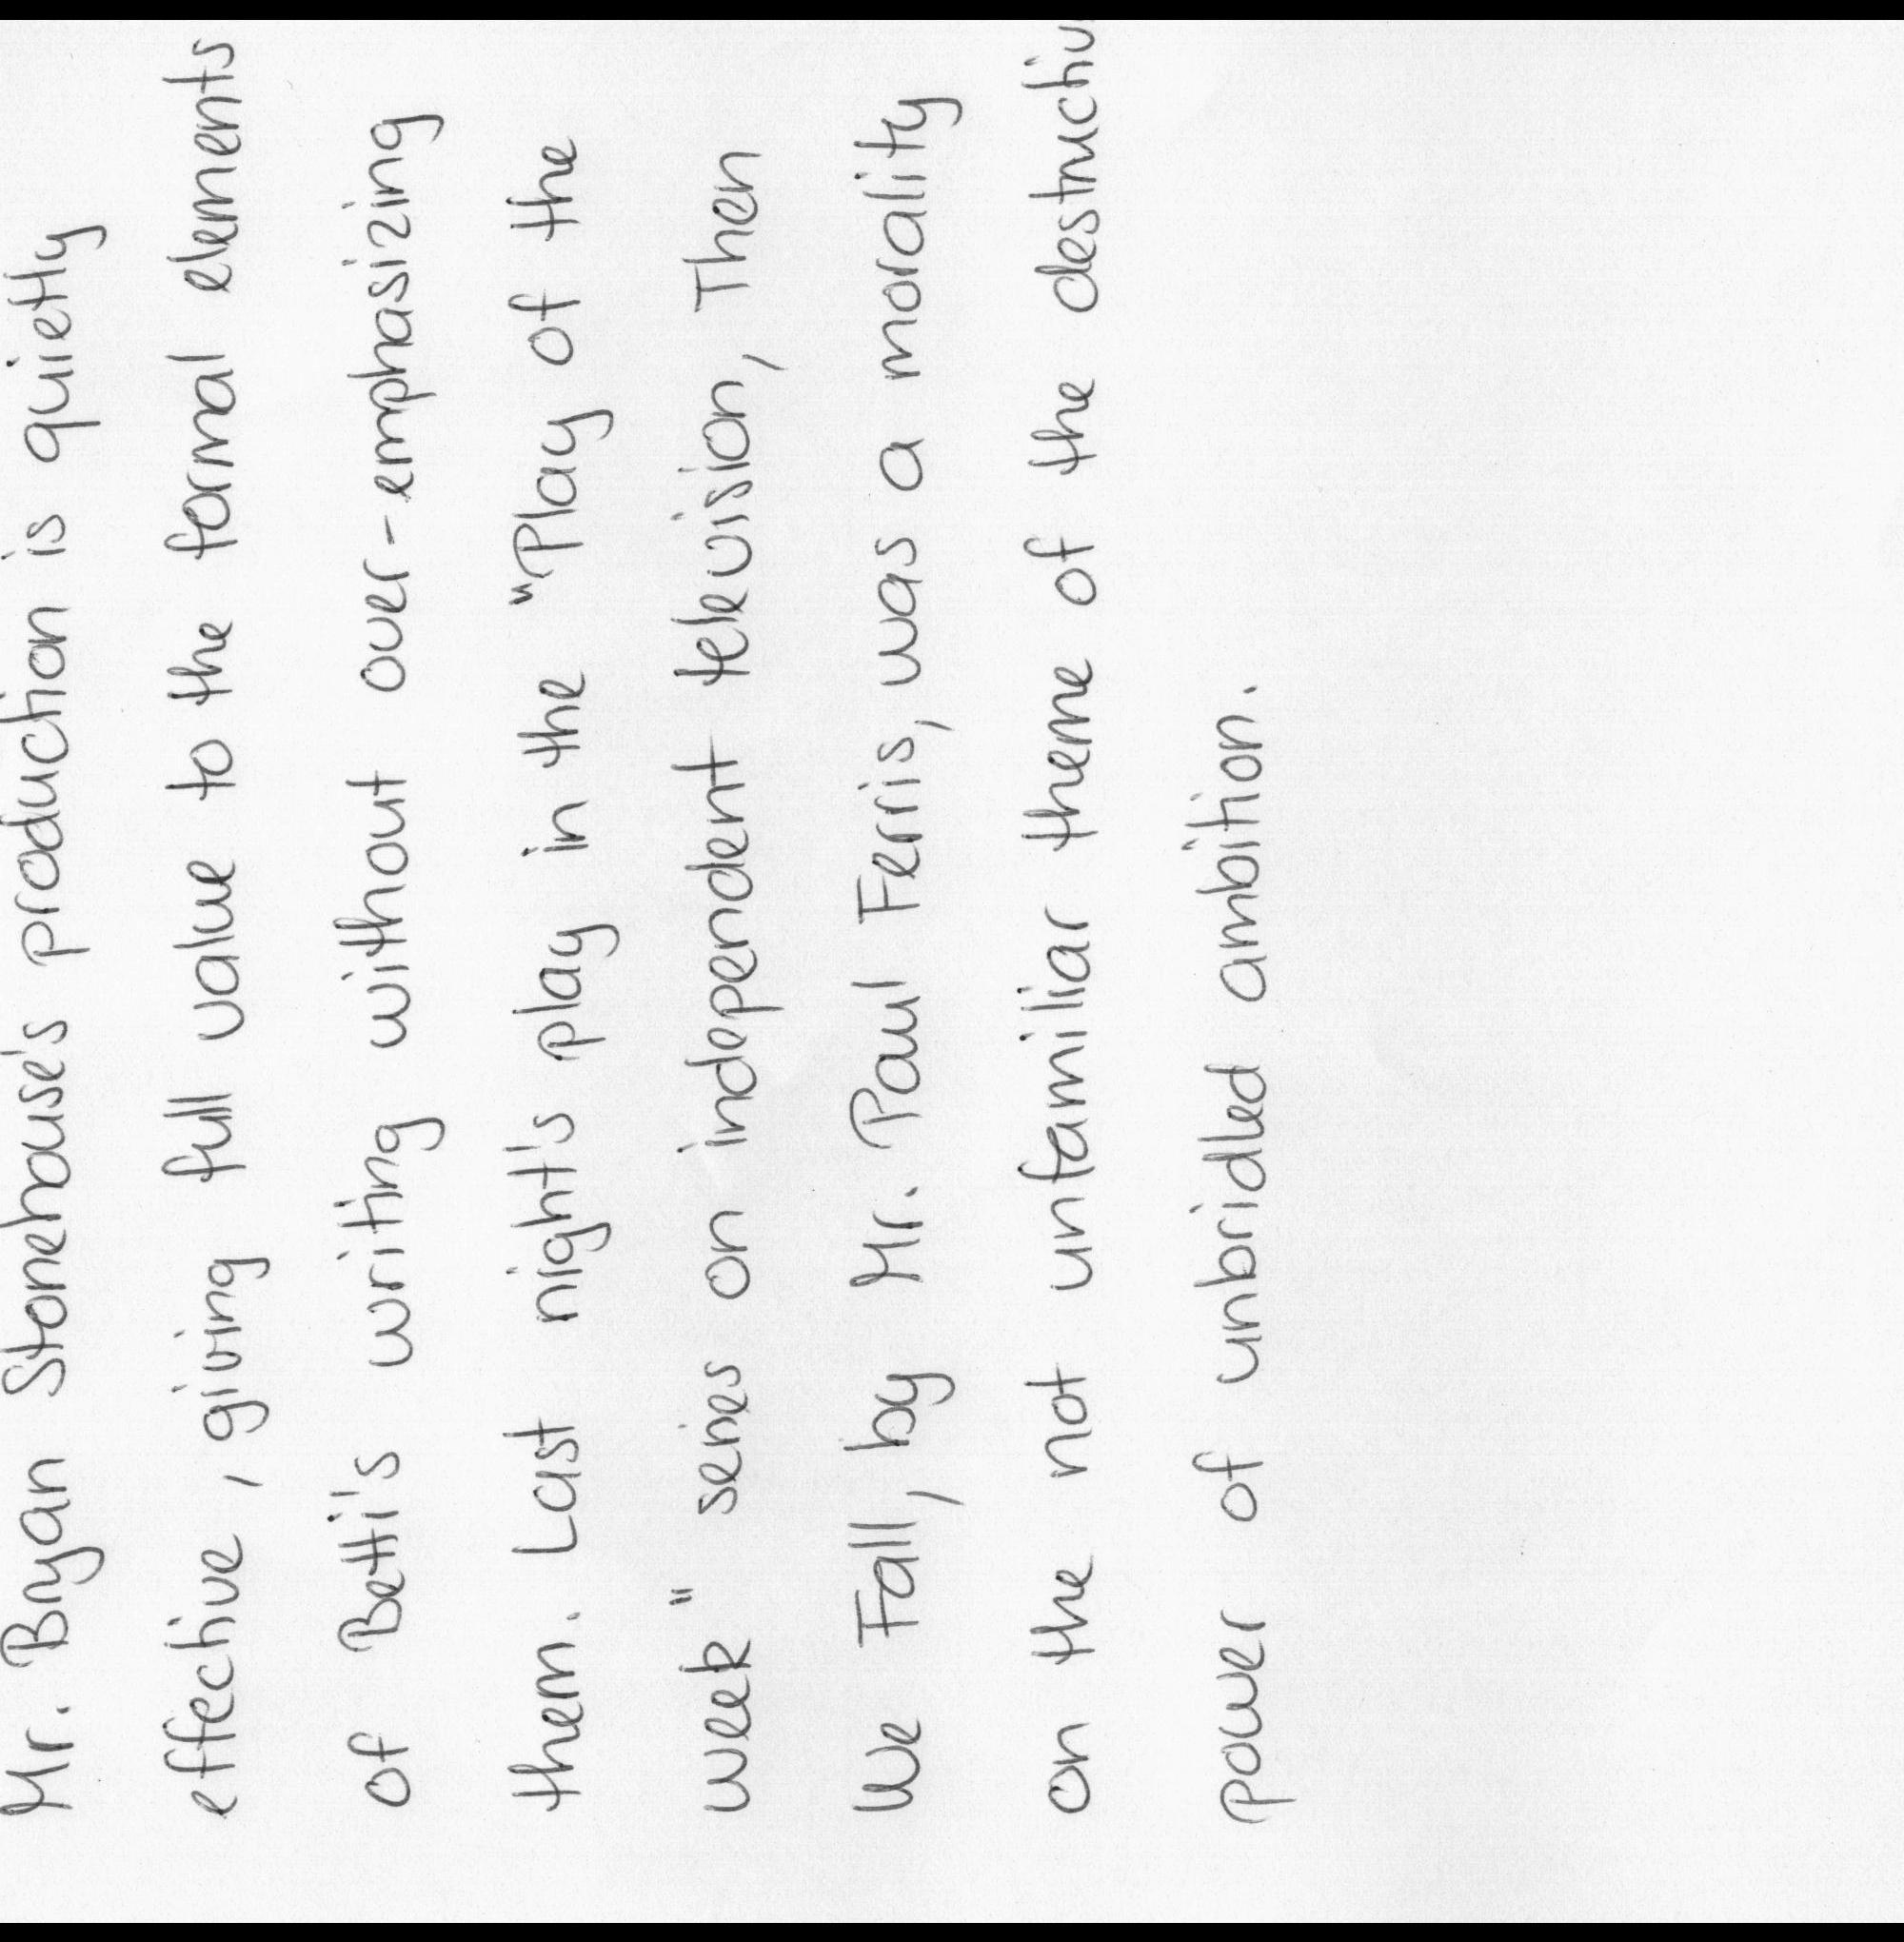 Mr. Bryan Stonehouse's production is quietly
effective, giving full value to the formal elements
of Betti's writing without over-emphasizing
them. Last night's play in the "Play of the
week" series on independent television, Then
We Fall, by Mr. Paul Ferris, was a morality
on the not unfamiliar theme of the destructiv
power of unbridled ambition.